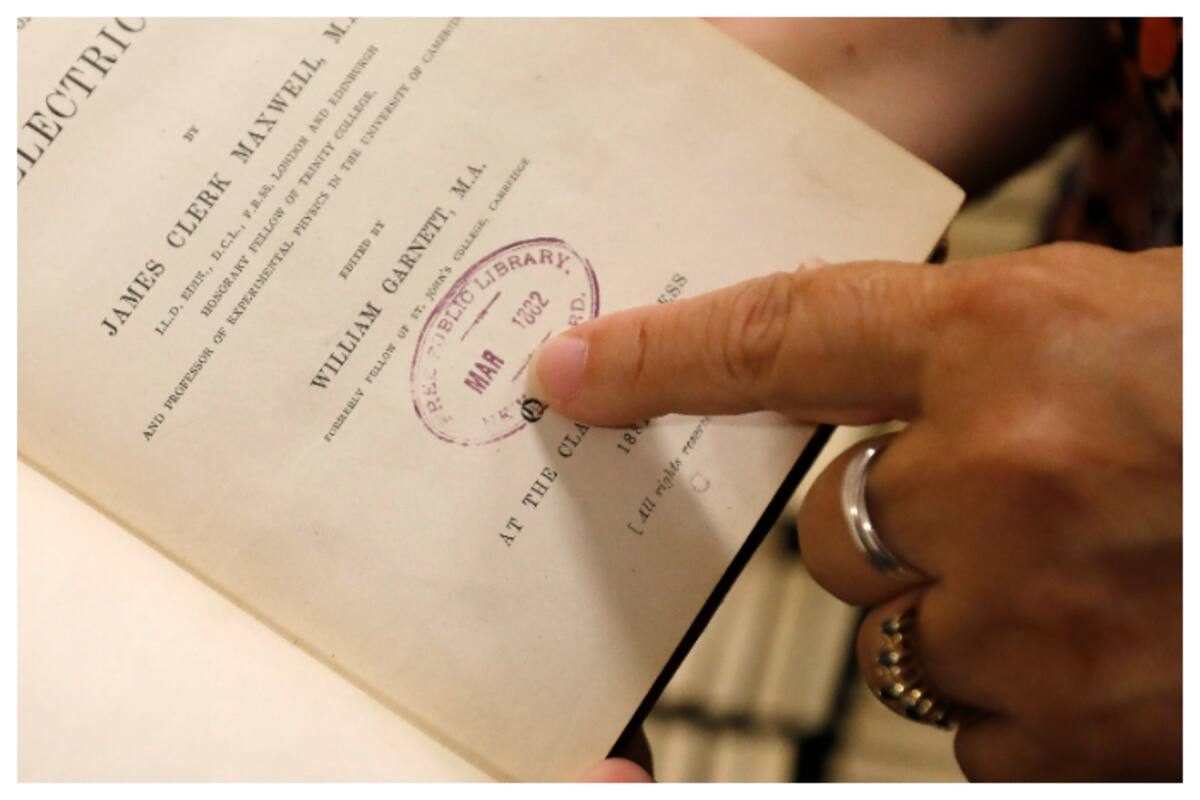 ELECTRIC
BY
JAMES CLERK MAXWELL, M.
LL.D. EDIN., D.C.L., F.R.SS. LONDON AND EDINBURGH
HONORARY FELLOW OF TRINITY COLLEGE,
AND PROFESSOR OF EXPERIMENTAL PHYSICS IN THE UNIVERSITY OF CAMBRID
EDITED BY
WILLIAM GARNETT, M.A.
FORMERLY FELLOW OF ST. JOHN'S COLLEGE, CAMBRIDGE
FREE PUBLIC LIBRARY.
MAR 1882
NEW RD.
AT THE CLA ESS
188
[All rights reserv